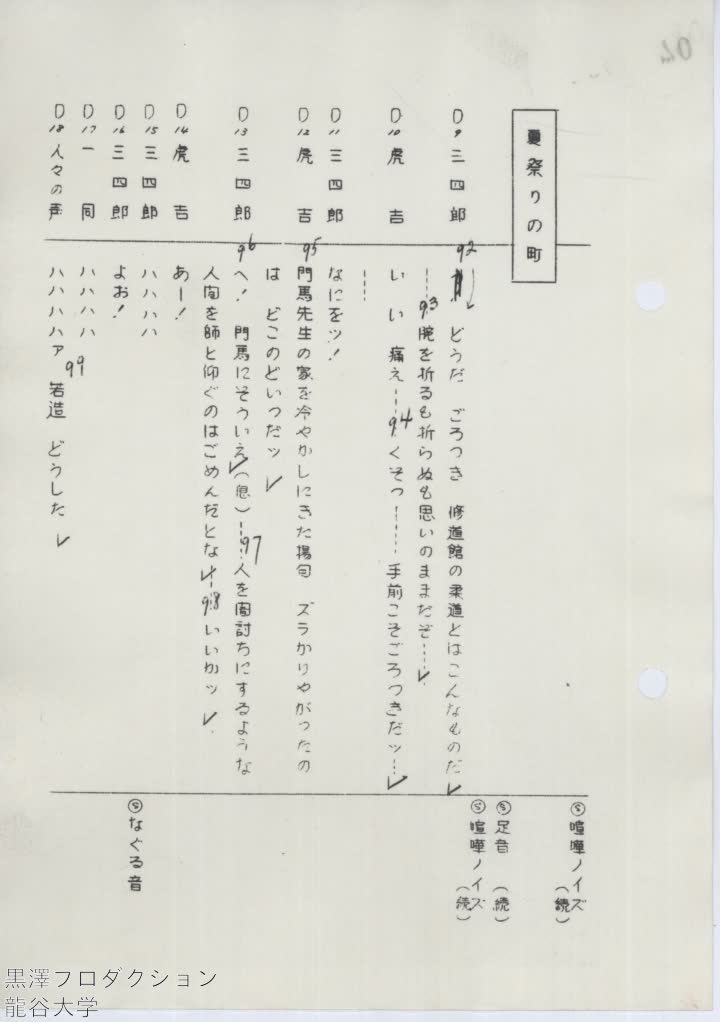 夏祭りの町
D9 三四郎
92 どうだ ごろつき 修道館の柔道とはこんなものだ
……93 腕を折るも折らぬも思いのままだぞ……
⑤喧嘩ノイズ(続)
⑤足音(続)
⑤喧嘩ノイズ(続)
D10 虎吉
い い 痛え……94 くそっ……… 手前こそごろつきだッ……
……
D11 三四郎
なにをッ!
D12 虎吉
95 門馬先生の家を冷やかしにきた揚句 ズラかりやがったの
は どこのどいつだッ
D13 三四郎
96 へ! 門馬にそういえ(息)……97 人を闇討ちにするような
人間を師と仰ぐのはごめんだとな 98 いいかッ
D14 虎吉
あー!
D15 三四郎
ハハハハ
⑤なぐる音
D16 三四郎
よお!
D17 一同
ハハハハ
D18 人々の声
ハハハハァ 99 若造 どうした
黒澤プロダクション
龍谷大学